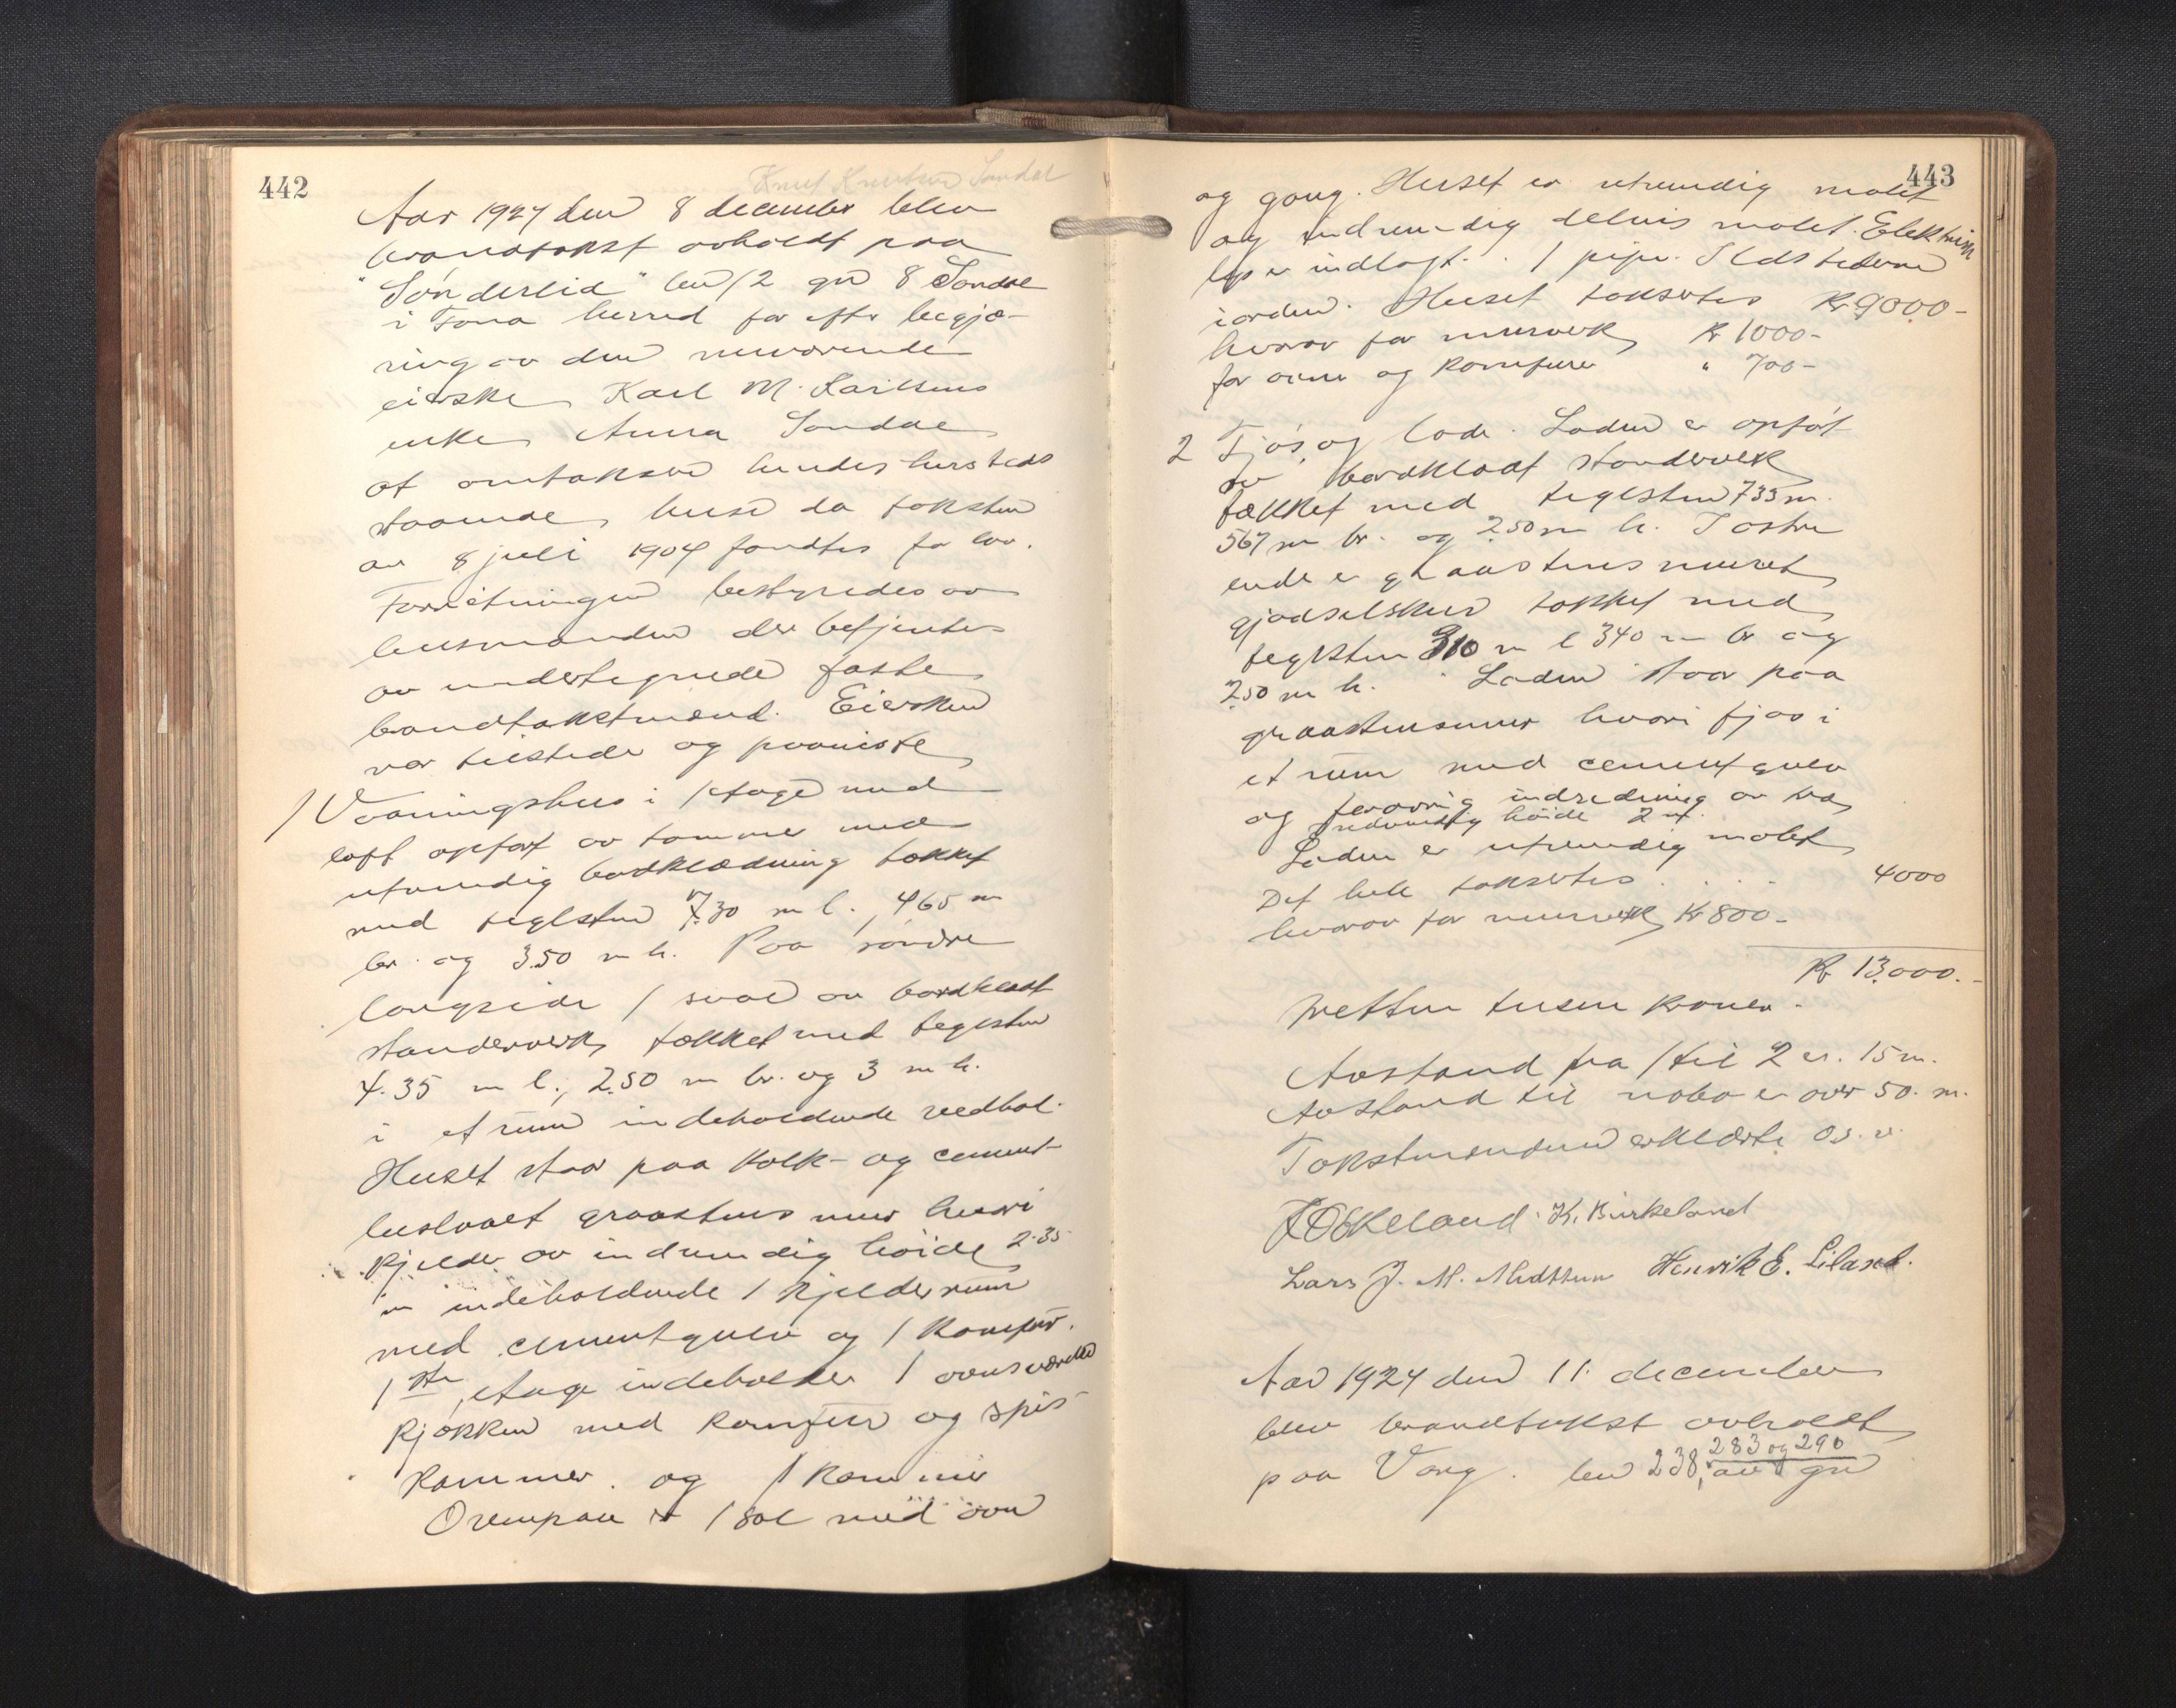 442
Knut Knutsen Sandal
Aar 1924 den 8 december blev
brandtakst avholdt paa
"Sønderlid" bn 12 gn 8 Sandal
i Fana herred for efter begjæ-
ring av den nuværende
eierske Karl M. Karlsens
enke Anna Sandal
at omtaksere hendes hersteds
staaende huse da taksten
av 8 juli 1904 fandtes for lav.
Forretningen bestyredes av
lensmanden der betjentes
av undertegnede faste
brandtakstmænd. Eiersken
var tilstede og paaviste
1 Vaaningshus i 1 etage med
loft opført av tømmer med
utvendig bordklædning tækket
med teglsten 7.30 m l., 4.65 m
br. og 3.50 m h. Paa søndre
langside 1 sval av bordklædt
standerverk tækket med teglsten
4.35 m l., 2.50 m br. og 3 m h.
i et rum indeholdende vedbol.
Huset staar paa kalk- og cement-
beslaaet graastens mur hvori
kjelder av indvendig høide 2.35
m indeholdende 1 kjelderrum
med cementgulv og 1 komfur.
1ste etage indeholder 1 ovnsværelse
kjøkken med komfur og spis
kammer og 1 kammer
Ovenpaa er 1 sal med ovn
443
og gang. Huset er utvendig malet
og indvendig delvis malet. Elektrisk
lys er indlagt. 1 pipe. Ildstederne
iorden. Huset taksertes Kr 9000-
hvorav for murverk Kr 1000-
for ovne og komfurer " 700-
2 Fjøs og lade. Laden er opført
av bordklædt standerverk
tækket med teglsten 735 m.
567 m br. og 250 m h. I østre
ende er graastensmuret
gjødselskur tækket med
teglsten 310 m l 340 m br og
250 m h. Laden staar paa
graastensmur hvori fjøs i
et rum med cementgulv
og forøvrig indredning av træ
indvendig høide 2 m.
Laden er utvendig malet
Det hele taksertes . . . 4000
hvorav for murverk Kr 800-
Kr 13.000.-
tretten tusen kroner.
Avstand fra 1 til 2 er 15 m.
Avstand til nabo er over 50 m.
Takstmændene erklærte o.s.v.
K. Birkeland
Lars J. M. Midttun Henrik E. Liland.
Aar 1924 den 11 december
blev brandtakst avholdt
283 og 290
paa Varg. bn 238, av gn